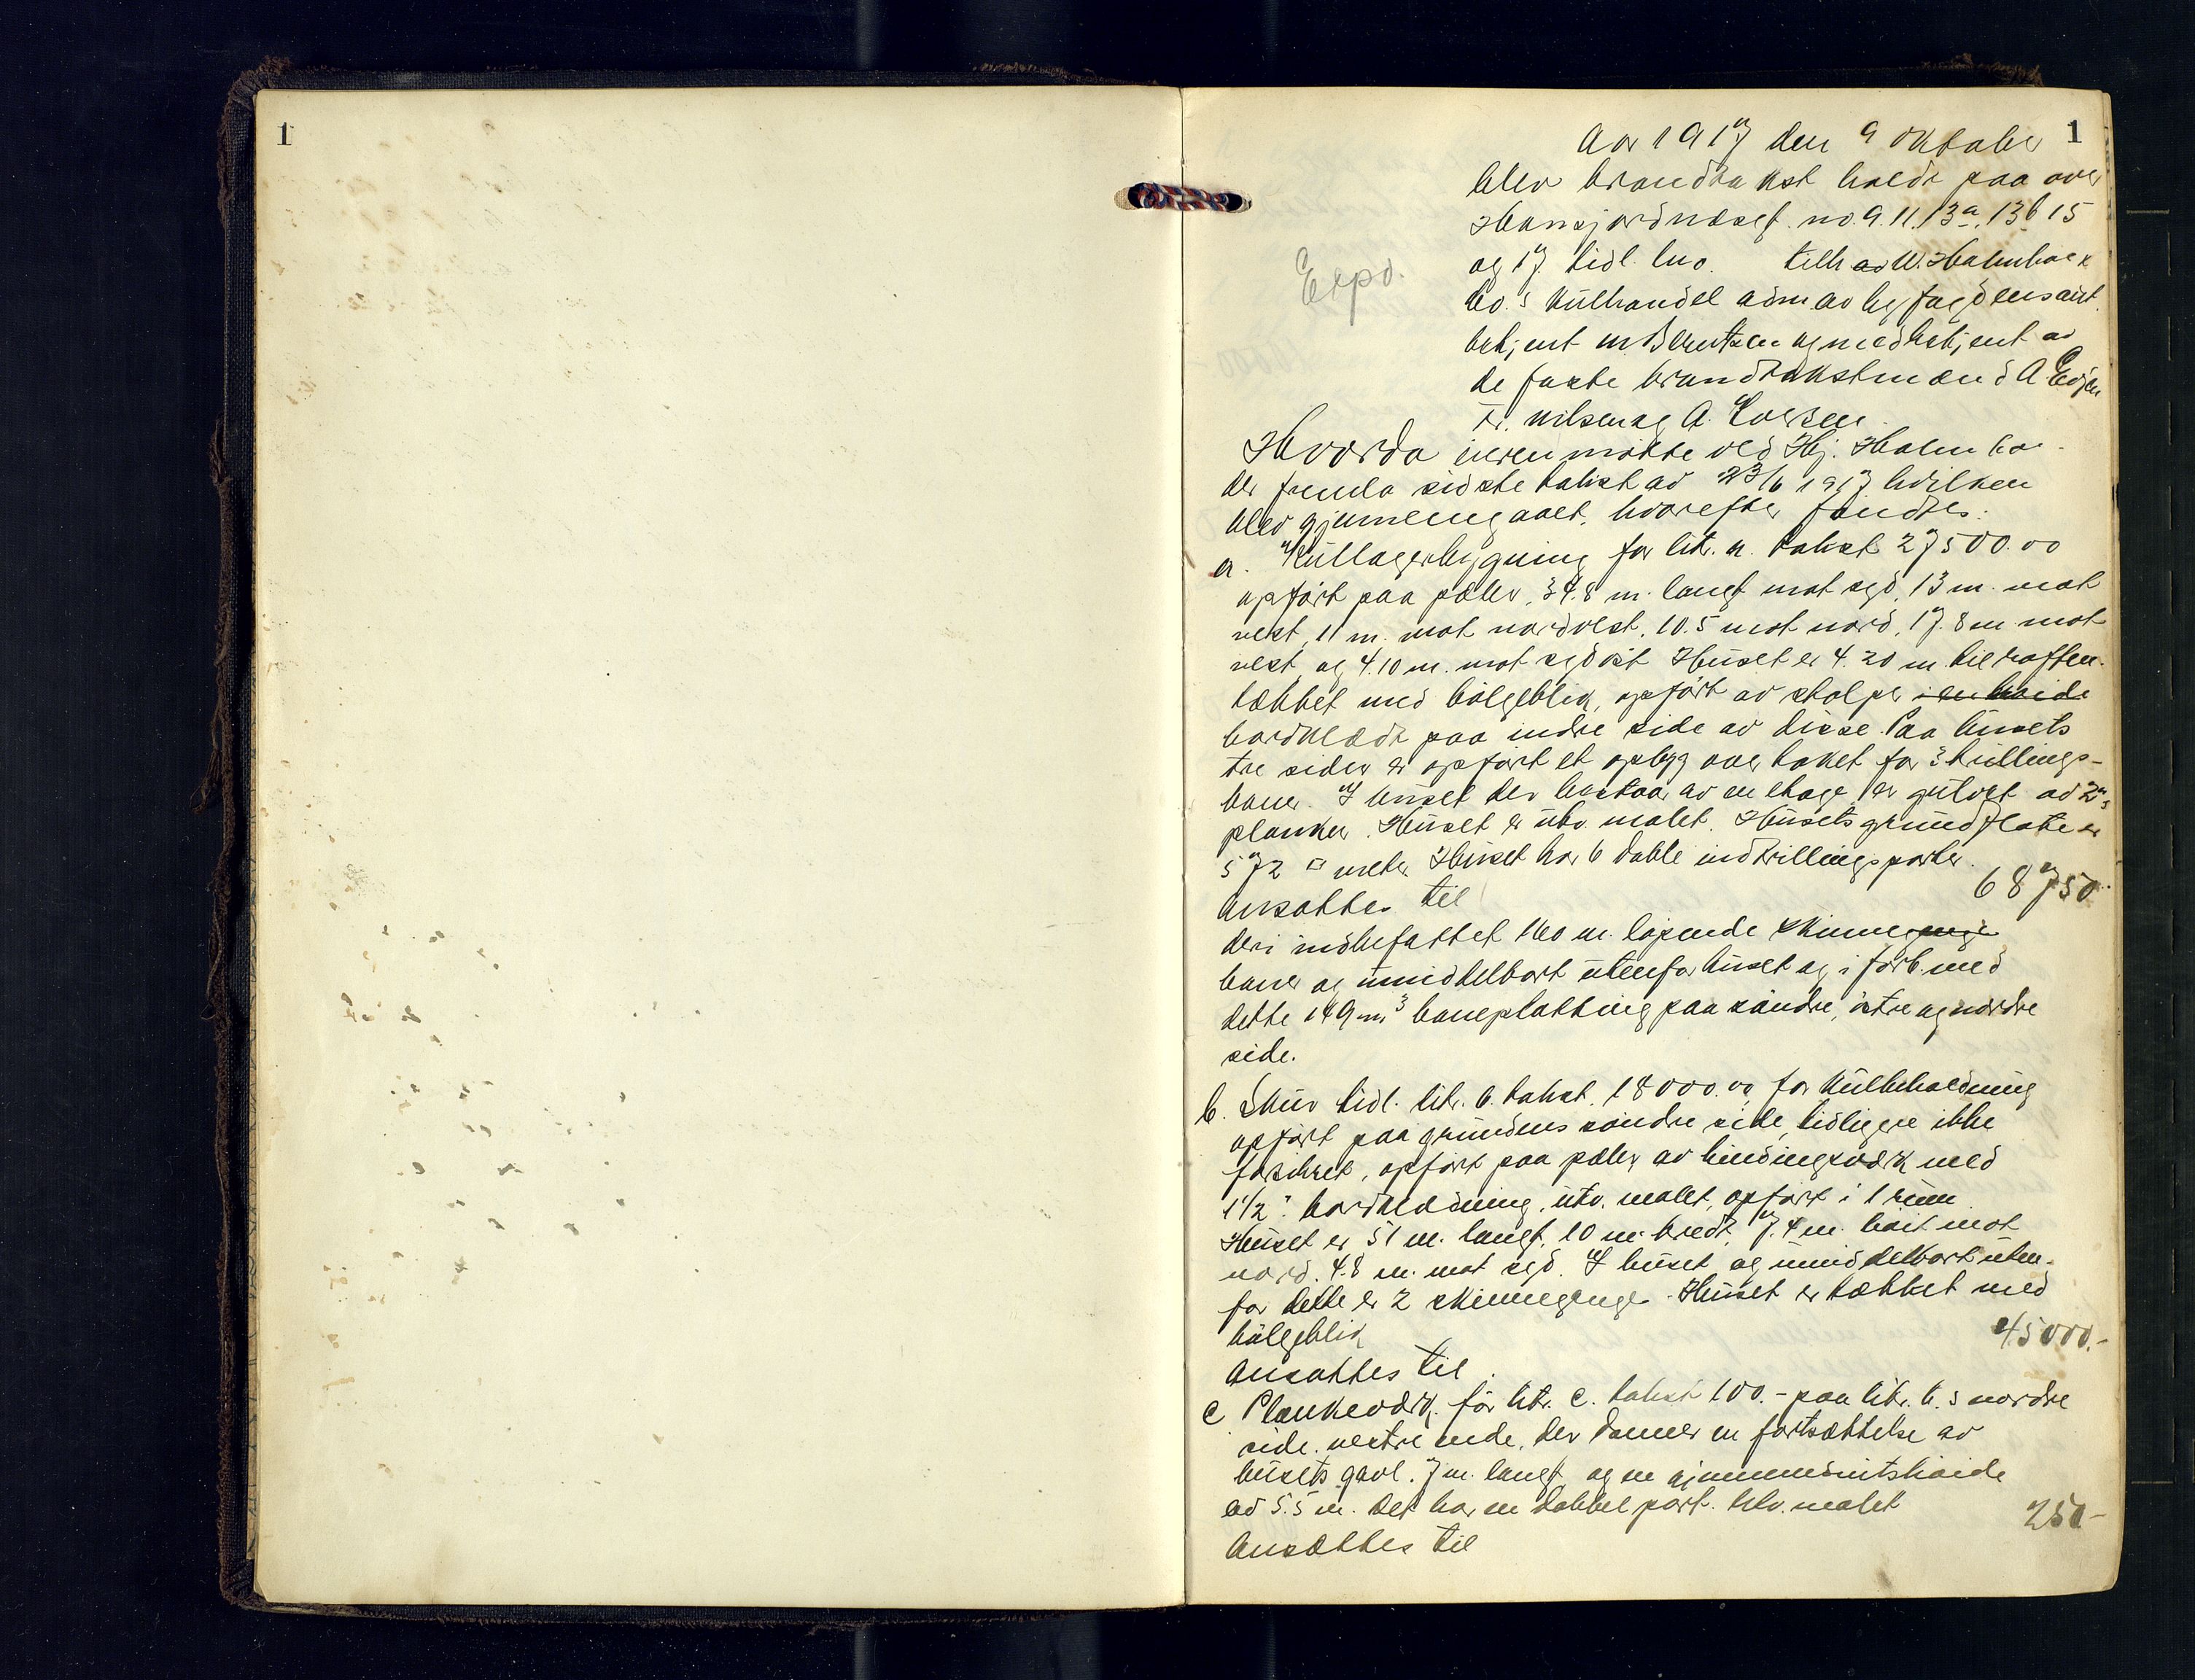 1
1
Aar 1917 den 9 oktober
blev brandtakst holdt paa over
Hansjordnæsgt. no. 9. 11. 13a. 13b 15
og 17. tidl. lno. tilh av W. Holmboe &
Co.s kulhandel adm. av byfogdens aut.
betjent M. Berntzen og medbetjent av
de faste brandtakstmænd A. Edjen
Fr. Nilsen og A. Evensen.
Expd.
Hvorda eieren møtte ved Hj. Holmboe
der fremla sidste takst av 23/6 1917 hvilken
blev gjennemgaaet, hvorefter fandtes:
a. Kullagerbygning før litr. a. takst 27500.00
opført paa pæler, 34.8 m. langt mot syd, 13 m. mot
vest, 11 m. mot nordvest, 10.5 mot nord, 17.8 m mot
vest og 4.10 m. mot sydøst Huset er 4.20 m. til raften.
tækket med bølgeblik, opført av stolper i en høide
bordklædt paa indre side av disse. Paa husets
tre sider er opført et opbyg over taket for trillings-
baner. I huset der bestaar av en etage er gulvet av 2"s
planker. Huset er utv. malet. Husets grundflate er
572 □ meter. Huset har 6 doble indkrillingsporter.
Ansættes til 68750.-
deri indbefattet 160 m. løpende skinnegange
baner og umiddelbart utenfor huset og i forb. med
dette 149 m³ baneplatting paa søndre, østre og nordre
side.
b. Skur tidl. litr. b. takst. 18000.00 for kulbeholdning
opført paa grundens søndre side, tidligere ikke
forsikret, opført paa pæler av bindingsverk med
1 1/2" bordklædning, utv. malet, opført i 1 rum
Huset er 51 m. langt, 10 m. bredt, 7.4 m. høit mot
nord. 4.8 m. mot syd. I huset og umiddelbart uten-
for dette er 2 skinnegange. Huset er tækket med
bølgeblik
Ansættes til 45000.-
c Plankeverk. før litr. c. takst 100.- paa litr. b.s nordre
side. vestre ende, der danner en fortsættelse av
husets gavl. 7 m. langt og en gjennemsnitshøide
av 5.5 m. Det har en dobbel port. Utv. malet
Ansættes til 250-